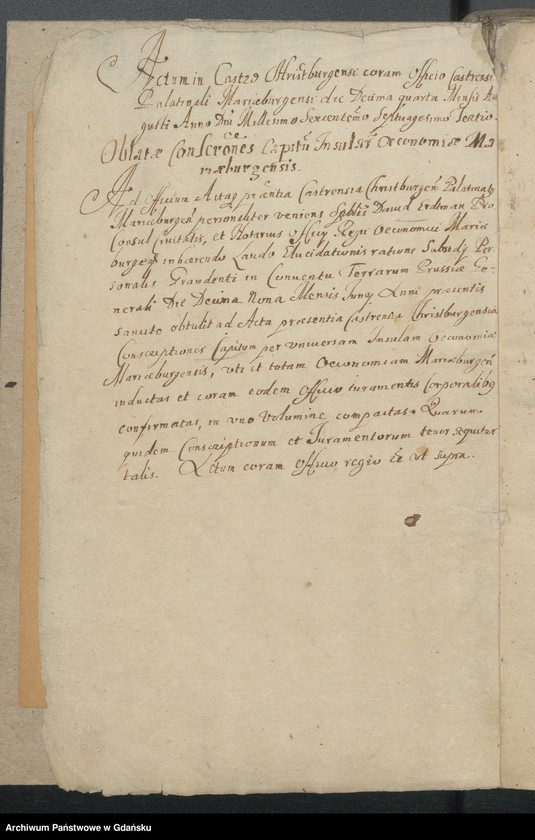 Actum in Castro Christburgensi coram Officio Castrensi
Palatinali Mariæburgensi die Decima quarta Mensis Au
gusti Anno Dni Millesimo Sexcentemo Septuagesimo Tertio
Oblatæ Conscrenes Capitu Insulæ Oeconomiæ Ma
riæburgensis.
Ad Officium Actaq præntia Castrensia Christburgen Palatinalis
Mariæburgen personaliter veniens Spblis David Erdtman Pro
Consul civitatis, et Notarius Officij Regij Oeconomiæ Mariæ
burgen inhærendo Laudo Elucidationis ratione Subsidij Per
sonalis Grandenti in Conventu Terrarum Prussiæ Ge-
nerali Die Decima Nona Mensis Junij Anni præsentis
sancito obtulit ad Acta præsentia Castrensia Christburgensia
Conscriptiones Capitum per universam Insulam Oeconomiæ
Mariæburgensis, uti et totam Oeconomiam Mariæburgen
inductas et coram eodem Officio iuramentis Corporalibq
confirmatas, in uno Volumine compactas. Quarum
quidem Conscriptionum et Juramentorum tenor sequitur
talis. Actum coram Officio regio ut supra.
Archiwum Państwowe w Gdańsku